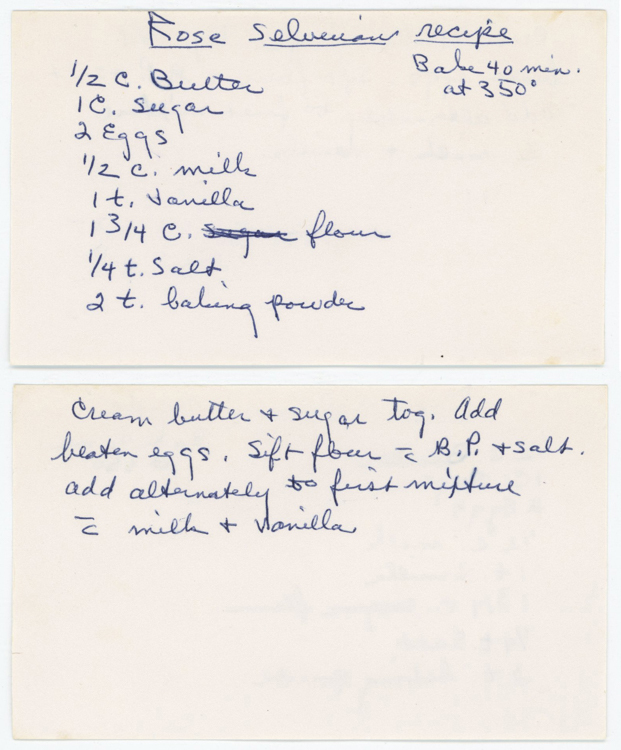 Rose Selverian recipe
Bake 40 min.
at 350°
1/2 C. Butter
1 C. Sugar
2 Eggs
1/2 C. milk
1 t. Vanilla
1 3/4 C. sugar flour
1/4 t. Salt
2 t. baking powder
Cream butter + sugar tog. Add
beaten eggs. Sift flour c̄ B.P. + salt.
add alternately to first mixture
c̄ milk + Vanilla